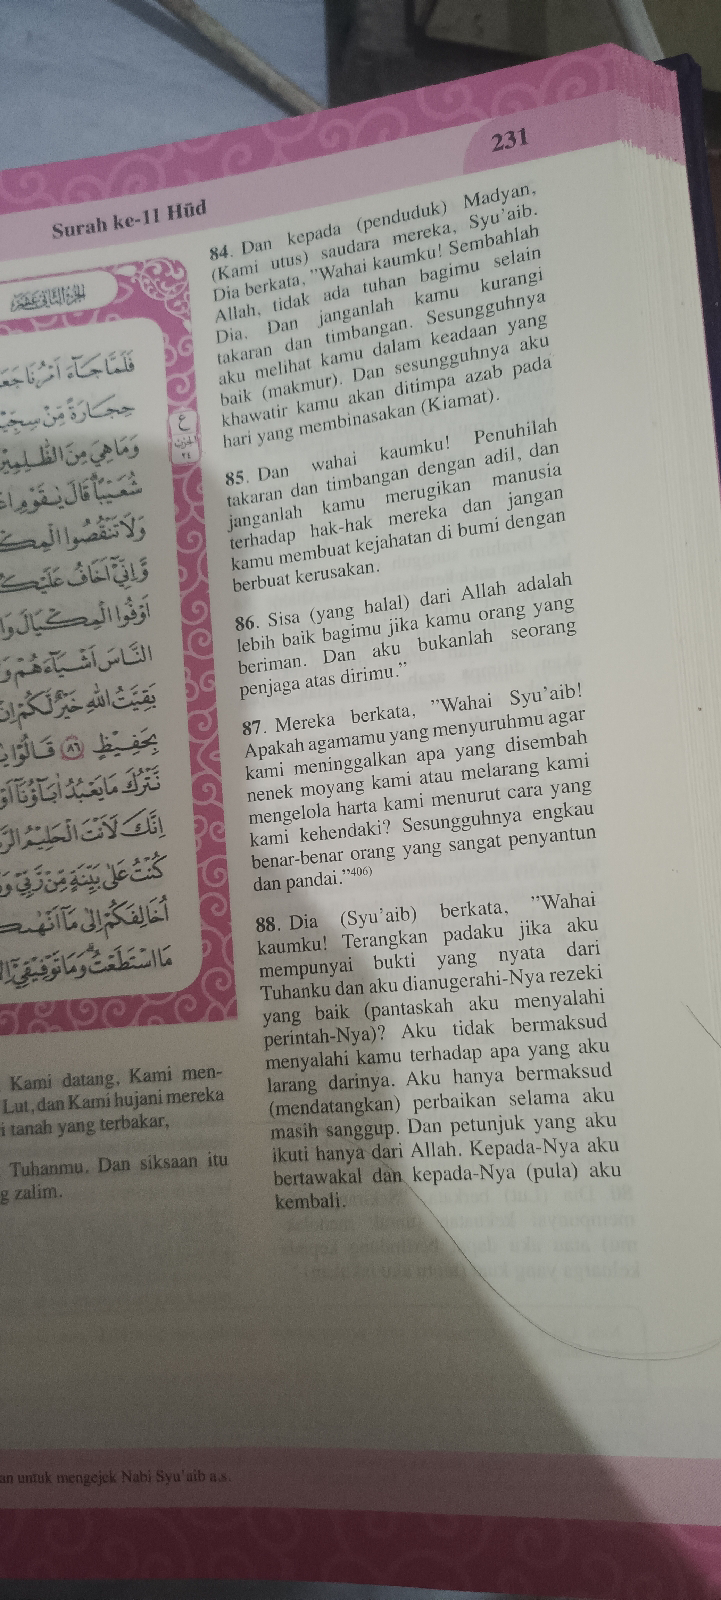 231
Surah ke-11 Hūd
الجزء الثاني عشر
فَلَمَّا جَآءَ اَمْرُنَا جَعَ
حِجَارَةً مِّنْ سِجِّيْ
وَمَا هِيَ مِنَ الظّٰلِمِيْنَ
شُعَيْبًا ۗ قَالَ يٰقَوْمِ اعْ
وَلَا تَنْقُصُوا الْمِكْ
وَّاِنِّيْٓ اَخَافُ عَلَيْكُ
اَوْفُوا الْمِكْيَالَ وَا
النَّاسَ اَشْيَاۤءَهُمْ وَ
بَقِيَّتُ اللّٰهِ خَيْرٌ لَّكُمْ اِنْ
بِحَفِيْظٍ ٨٦ قَالُوْا يٰ
نَّتْرُكَ مَا يَعْبُدُ اٰبَاۤؤُنَآ اَوْ
اِنَّكَ لَاَنْتَ الْحَلِيْمُ الرَّ
كُنْتُ عَلٰى بَيِّنَةٍ مِّنْ رَّبِّيْ وَ
اُخَالِفَكُمْ اِلٰى مَآ اَنْهٰىكُ
مَا اسْتَطَعْتُ ۗ وَمَا تَوْفِيْقِيْٓ اِلَّ
ع
الحزب
٢٤
Kami datang, Kami men-
Lut, dan Kami hujani mereka
i tanah yang terbakar,
Tuhanmu. Dan siksaan itu
g zalim.
84. Dan kepada (penduduk) Madyan,
(Kami utus) saudara mereka, Syu'aib.
Dia berkata, "Wahai kaumku! Sembahlah
Allah, tidak ada tuhan bagimu selain
Dia. Dan janganlah kamu kurangi
takaran dan timbangan. Sesungguhnya
aku melihat kamu dalam keadaan yang
baik (makmur). Dan sesungguhnya aku
khawatir kamu akan ditimpa azab pada
hari yang membinasakan (Kiamat).
85. Dan wahai kaumku! Penuhilah
takaran dan timbangan dengan adil, dan
janganlah kamu merugikan manusia
terhadap hak-hak mereka dan jangan
kamu membuat kejahatan di bumi dengan
berbuat kerusakan.
86. Sisa (yang halal) dari Allah adalah
lebih baik bagimu jika kamu orang yang
beriman. Dan aku bukanlah seorang
penjaga atas dirimu."
87. Mereka berkata, "Wahai Syu'aib!
Apakah agamamu yang menyuruhmu agar
kami meninggalkan apa yang disembah
nenek moyang kami atau melarang kami
mengelola harta kami menurut cara yang
kami kehendaki? Sesungguhnya engkau
benar-benar orang yang sangat penyantun
dan pandai."406)
88. Dia (Syu'aib) berkata, "Wahai
kaumku! Terangkan padaku jika aku
mempunyai bukti yang nyata dari
Tuhanku dan aku dianugerahi-Nya rezeki
yang baik (pantaskah aku menyalahi
perintah-Nya)? Aku tidak bermaksud
menyalahi kamu terhadap apa yang aku
larang darinya. Aku hanya bermaksud
(mendatangkan) perbaikan selama aku
masih sanggup. Dan petunjuk yang aku
ikuti hanya dari Allah. Kepada-Nya aku
bertawakal dan kepada-Nya (pula) aku
kembali.
an untuk mengejek Nabi Syu'aib a.s.